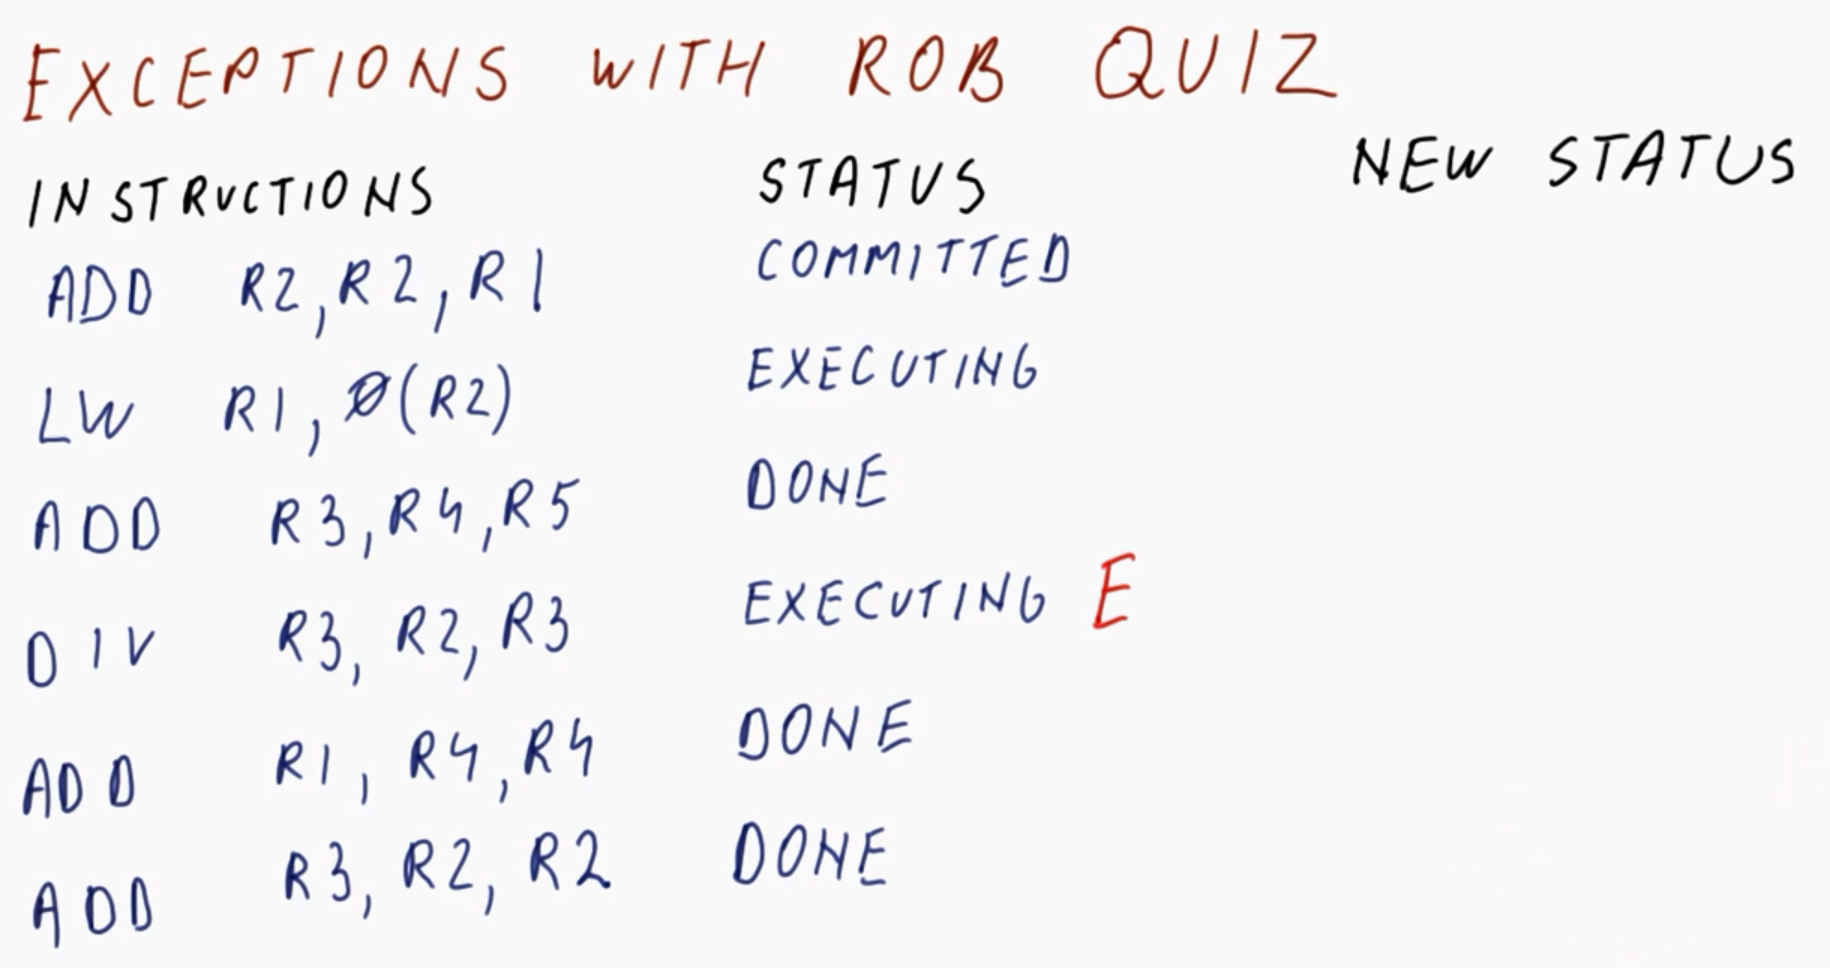 EXCEPTIONS WITH ROB QUIZ
INSTRUCTIONS STATUS NEW STATUS
ADD R2, R2, R1 COMMITTED
LW R1, Ø(R2) EXECUTING
ADD R3, R4, R5 DONE
DIV R3, R2, R3 EXECUTING E
ADD R1, R4, R4 DONE
ADD R3, R2, R2 DONE